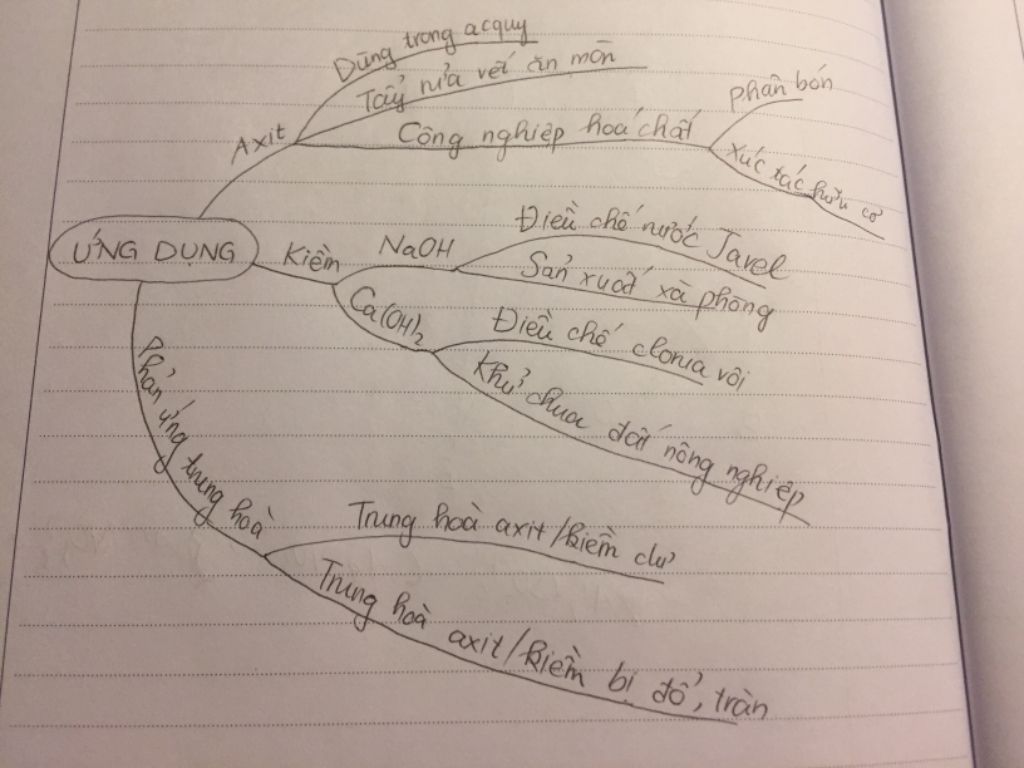 ỨNG DỤNG
Axit
Dùng trong acquy
Tẩy rửa vết ăn mòn
Công nghiệp hoá chất
Phân bón
Xúc tác hữu cơ
Kiềm
NaOH
Điều chế nước Javel
Sản xuất xà phòng
Ca(OH)2
Điều chế clorua vôi
Khử chua đất nông nghiệp
Phản ứng trung hoà
Trung hoà axit/kiềm dư
Trung hoà axit/kiềm bị đổ, tràn